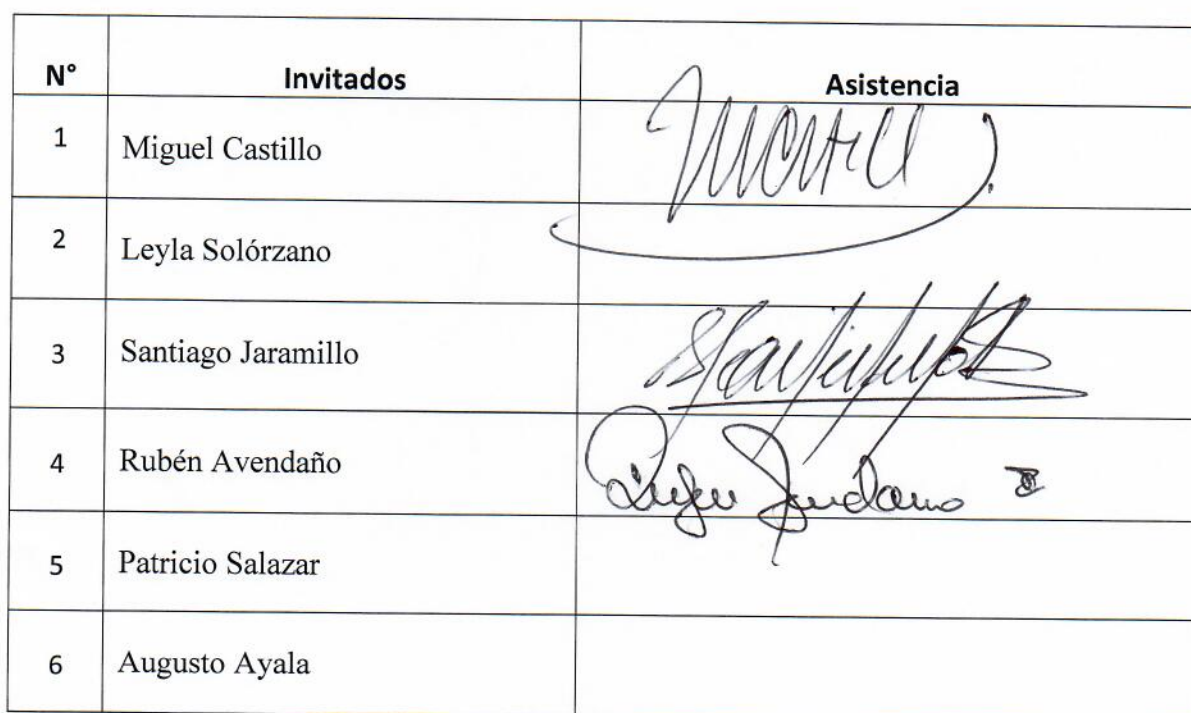 N° Invitados Asistencia
1 Miguel Castillo
2 Leyla Solórzano
3 Santiago Jaramillo
4 Rubén Avendaño
5 Patricio Salazar
6 Augusto Ayala